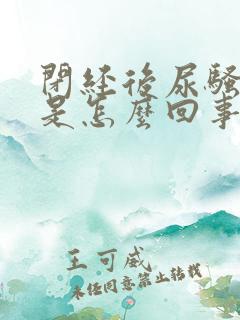 閉経後尿騷
是怎麼回事
王可威
未经同意禁止转载